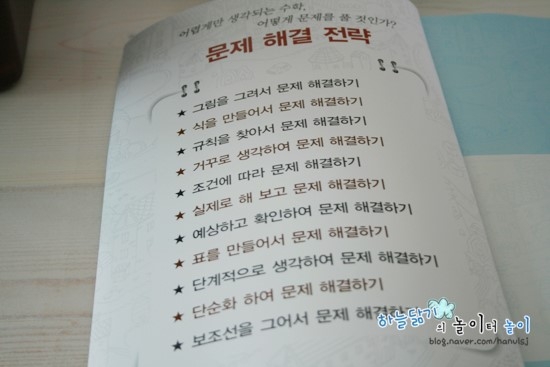 어렵게만 생각되는 수학,
어떻게 문제를 풀 것인가?
문제 해결 전략
★ 그림을 그려서 문제 해결하기
★ 식을 만들어서 문제 해결하기
★ 규칙을 찾아서 문제 해결하기
★ 거꾸로 생각하여 문제 해결하기
★ 조건에 따라 문제 해결하기
★ 실제로 해 보고 문제 해결하기
★ 예상하고 확인하여 문제 해결하기
★ 표를 만들어서 문제 해결하기
★ 단계적으로 생각하여 문제 해결하기
★ 단순화 하여 문제 해결하기
★ 보조선을 그어서 문제 해결하기
하늘닮기의 놀이터 놀이
blog.naver.com/hanulsj